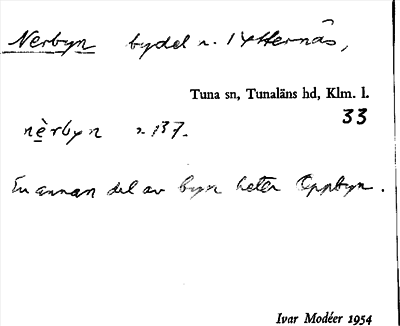 Nerbyn bydel n. Ytternäs,
Tuna sn, Tunaläns hd, Klm. l.
33
nèrbyn n. 137.
En annan del av byn heter Oppbyn.
Ivar Modéer 1954